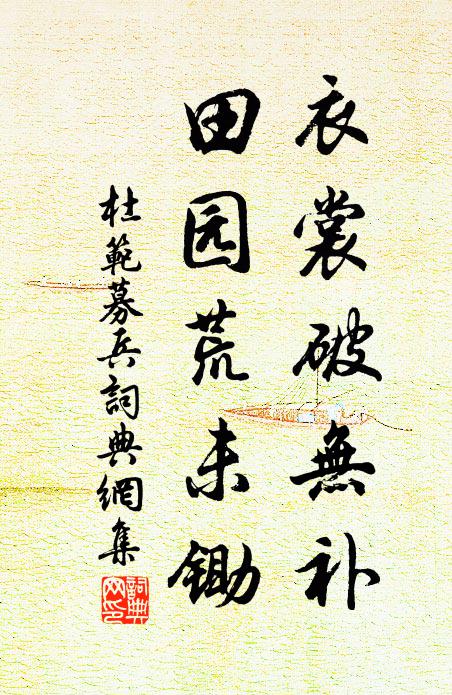 衣裳破無补
田园荒未锄
杜範募兵詞典網集
詞典网印